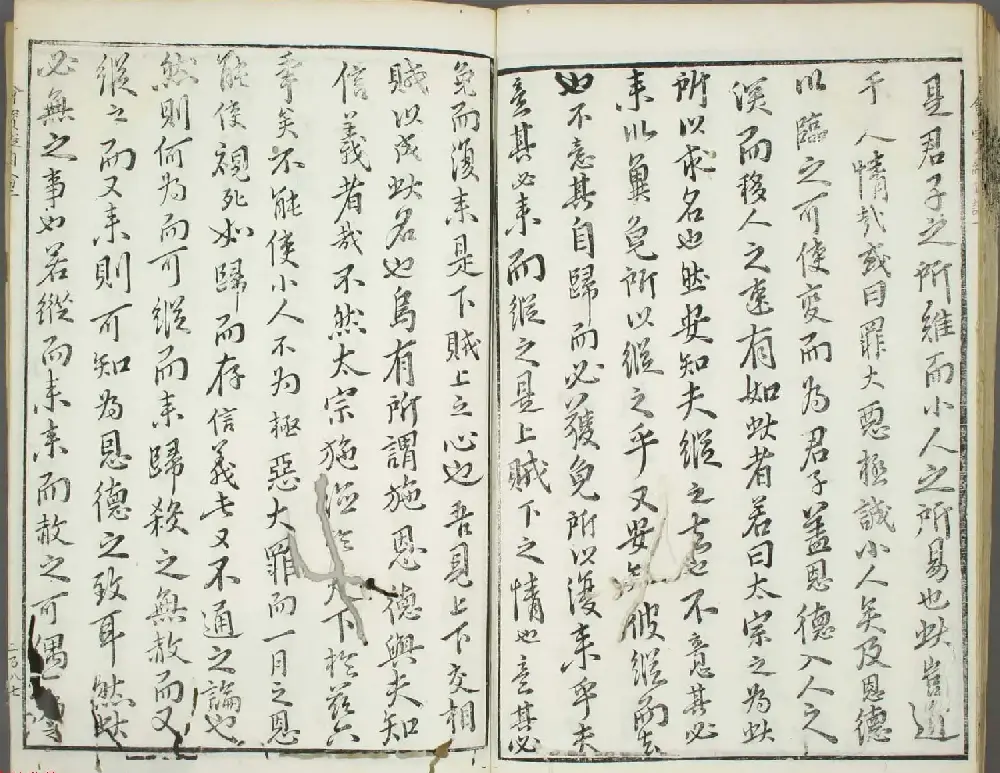 是君子之所難而小人之所易也此豈近
于人情哉或曰罪大惡極誠小人矣及恩德
以臨之可使變而為君子蓋恩德入人之
深而移人之速有如此者若曰太宗之為此
所以求名也然安知夫縱之去也不意其必
来以冀免所以縱之乎又安知彼縱而去
也不意其自歸而必獲免所以復来乎夫
意其必来而縱之是上賊下之情也意其必
免而復来是下賊上之心也吾見上下交相
賊以成此名也烏有所謂施恩德與夫知
信義者哉不然太宗施德於天下於茲六
年矣不能使小人不為極惡大罪而一日之恩
能使視死如歸而存信義者又不通之論也
然則何為而可縱而来歸殺之無赦而又
縱之而又来則可知為恩德之致耳然此
必無之事也若縱而来来而赦之可偶
二百八七